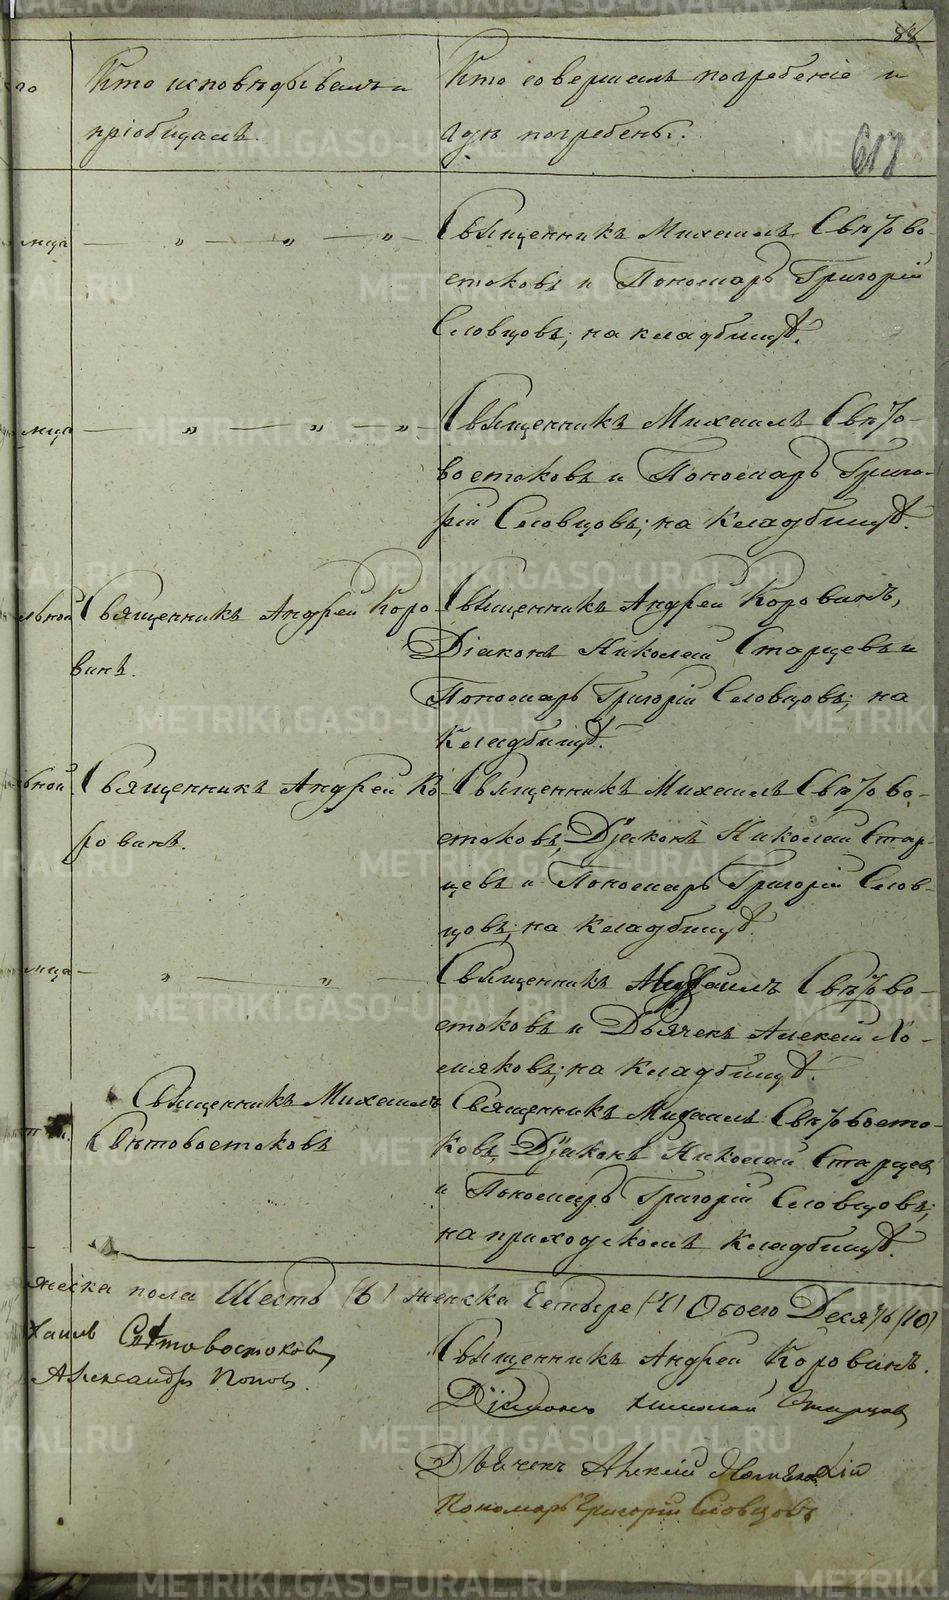 88
618
го
Кто исповѣдывалъ и
пріобщалъ.
Кто совершалъ погребеніе и
гдѣ погребены.
мца
Священникъ Михаилъ Свѣтово-
стоковъ и Пономарь Григорій
Словцовъ; на кладбищѣ.
мца
Священникъ Михаилъ Свѣто-
востоковъ и Пономарь Григо-
рій Словцовъ; на кладбищѣ.
ьной
Священникъ Андрей Коро-
винъ.
Священникъ Андрей Коровинъ,
Діаконъ Николай Старцевъ и
Пономарь Григорій Словцовъ; на
кладбищѣ.
ьной
Священникъ Андрей Ко
ровинъ.
Священникъ Михаилъ Свѣтово-
стоковъ, Діаконъ Николай Стар-
цевъ и Пономарь Григорій Слов-
цовъ; на кладбищѣ
мца
Священникъ Михаилъ Свѣтово-
стоковъ и Дьячекъ Алексій Хо-
мяковъ; на кладбищѣ.
Священникъ Михаилъ
Свѣтовостоковъ
Священникъ Михаилъ Свѣтовосто-
ковъ, Діаконъ Николай Старцевъ
и Пономарь Григорій Словцовъ;
на приходскомъ кладбищѣ.
жеска пола Шесть (6) женска Четыре (4) Обоего Десять (10)
хаилъ Свѣтовостоковъ
Александръ Поповъ.
Священникъ Андрей Коровинъ.
Діаконъ Николай Старцовъ
Дьячекъ Алексій
Пономарь Григорій Словцовъ
METRIKI.GASO-URAL.RU